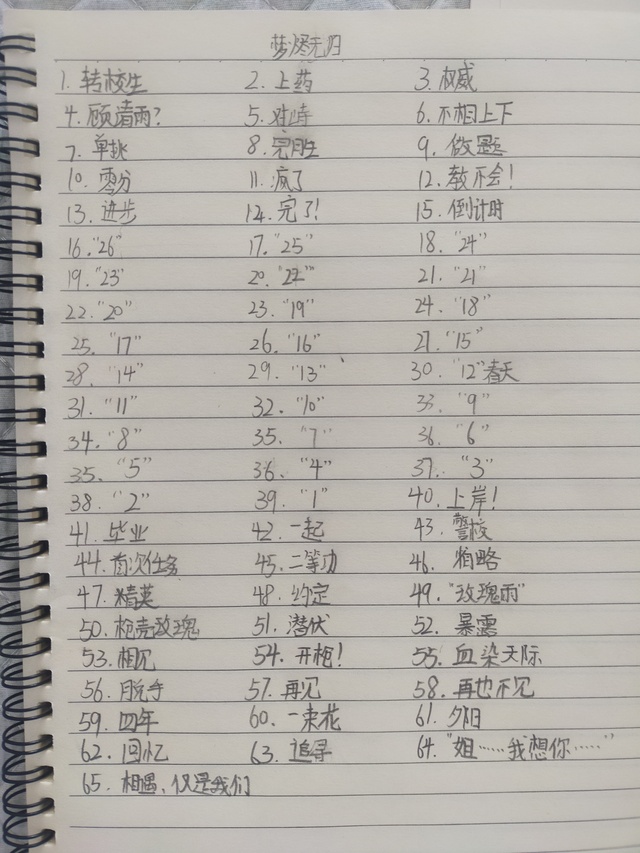 梦烬无归
1. 转校生 2. 上药 3. 权威
4. 顾清雨? 5. 对峙 6. 不相上下
7. 单挑 8. 完胜 9. 做题
10. 零分 11. 疯了 12. 教不会!
13. 进步 14. 完了! 15. 倒计时
16. "26" 17. "25" 18. "24"
19. "23" 20. "22" 21. "21"
22. "20" 23. "19" 24. "18"
25. "17" 26. "16" 27. "15"
28. "14" 29. "13" 30. "12"春天
31. "11" 32. "10" 33. "9"
34. "8" 35. "7" 36. "6"
35. "5" 36. "4" 37. "3"
38. "2" 39. "1" 40. 上岸!
41. 毕业 42. 一起 43. 警校
44. 首次任务 45. 二等功 46. 粗略
47. 精英 48. 约定 49. "玫瑰雨"
50. 枪壳玫瑰 51. 潜伏 52. 暴露
53. 相见 54. 开枪! 55. 血染天际
56. 脱手 57. 再见 58. 再也不见
59. 四年 60. 一束花 61. 夕阳
62. 回忆 63. 追寻 64. "姐……我想你……"
65. 相遇,仅是我们